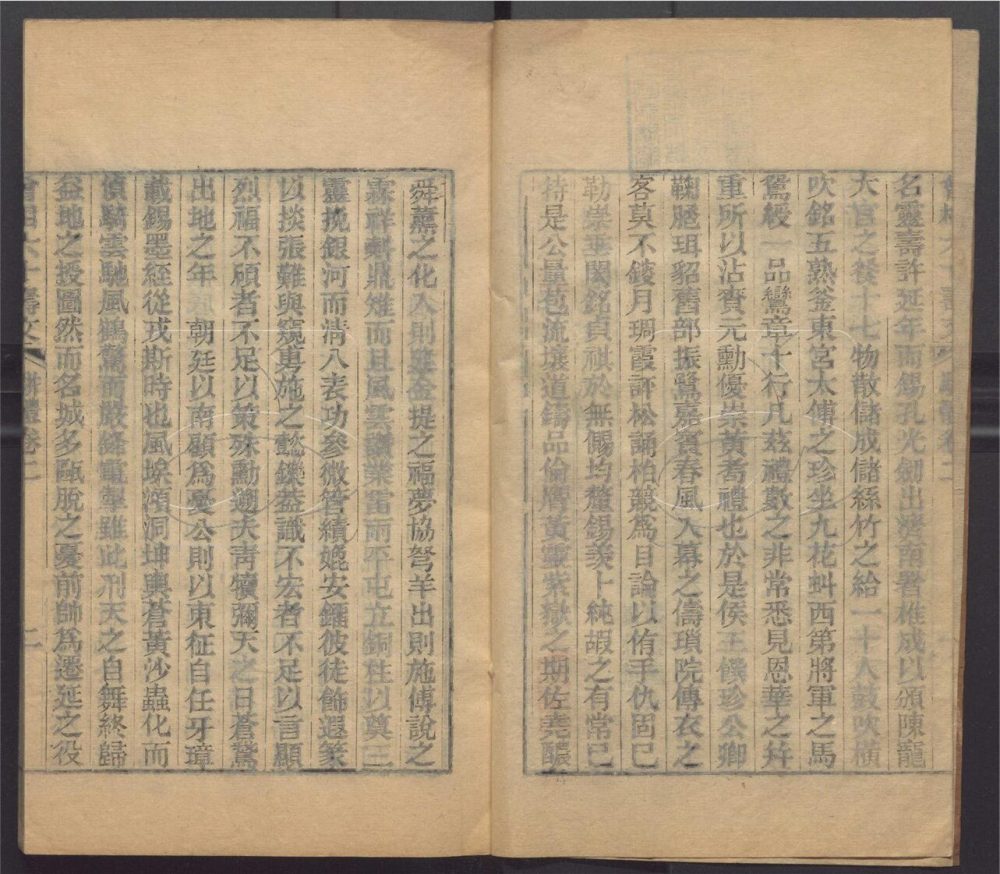 名靈壽許延年而錫孔光劒出濟南者椎成以頒陳龍
大官之餐十七物散儲成儲絲竹之給一十人鼓吹橫
吹銘五熟釜東宮太傅之珍坐九花虯西第將軍之馬
駕綬一品鸞章十行凡茲禮數之非常悉見恩華之
重所以沾賚元勳優崇黃耇禮也於是侯王饌珍公卿
鞠䠆珥貂舊部振鷺嘉賓春風入幕之儔瑣院傳衣之
客莫不錢月琱霞評松誦柏競爲目論以侑手仇固已
勒崇垂閎銘貞祺於無傷均釐錫羨卜純嘏之有常已
持是公量苞流壤道鑄品倫膺黃靈紫嶽之期佐堯醲
舜薰之化入則金提之福夢協弩羊出則施傅說之
霖祥斟鼎雉而且風雲讚業雷雨平屯立銅柱以奠三
靈挽銀河而淸八表功參微管績媲安劉彼徒飾遐篆
以掞張難與窺專施之懿鑠蓋識不宏者不足以言顯
烈福不碩者不足以策殊勳邇夫靑犢彌天之日蒼鵞
出地之年朝廷以南顧爲憂公則以東征自任牙璋
載錫墨絰從戎斯時也風埃澒洞坤輿蒼黃沙蟲化而
偵騎雲馳風鶴驚而嚴烽電掣雖此刑天之自舞終歸
益地之授圖然而名城多甌脫之憂前師爲遷延之役
六十壽文 駢體卷二 二